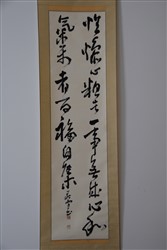 性燥心粗者一事無成心和
氣平者百福自集